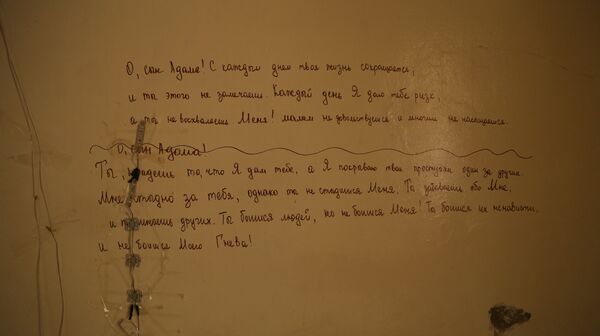 О, сын Адама! С каждым днем твоя жизнь сокращается,
и ты этого не замечаешь. Каждый день Я даю тебе ризк,
а ты не восхваляешь Меня! малым не довольствуешься и многим не насыщаешься.
О, сын Адама!
Ты, видишь то, что Я дам тебе, а Я покрываю твои проступки один за другим.
Мне стыдно за тебя, однако ты не стыдишься Меня. Ты забываешь обо Мне,
и поминаешь других. Ты боишься людей, но не боишься Меня! Ты боишься их ненависти,
и не боишься Моего Гнева!